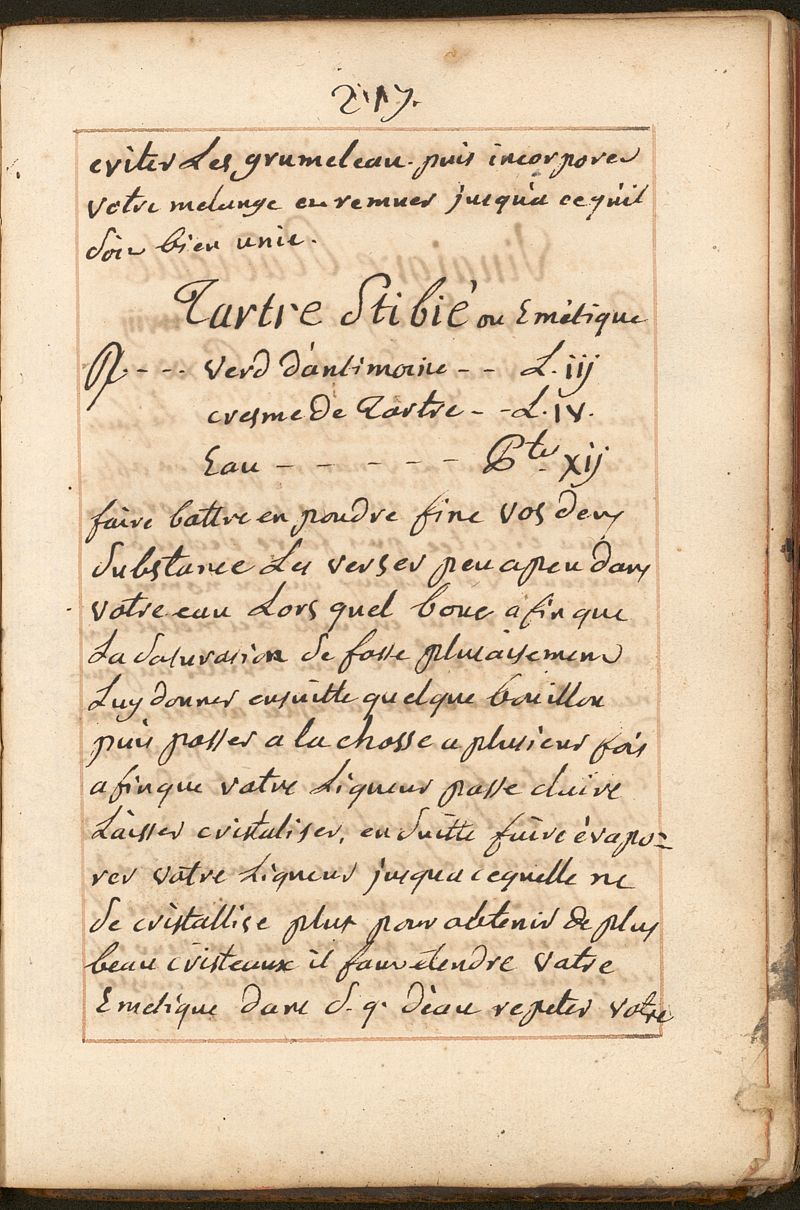 217.
eviter Les grumeleau. puis incorporer
votre melange en remuer jusqu'a ce qu'il
soit bien unie.
Tartre Stibié ou Emétique
℞. - - - verd d'antimoine - - L. iij
cresme de Tartre - - L. iv.
Eau - - - - - - Pte xij
faire battre en poudre fine vos deux
substance Les verser peu a peu dans
votre eau Lors quel bout afin que
La saturasion se fasse plus aisement
Luy donner ensuitte quelque bouillon
puis passer a la chosse a plusieur fois
afin que votre Liqueur passe claire
Laisser cristaliser, en suitte faire évapo-
rer votre Liqueur jusqua cequelle ne
se cristallise plus pour obtenir de plus
beau cristeaux il faut etendre votre
Emetique dans s. q. d'eau repeter votre